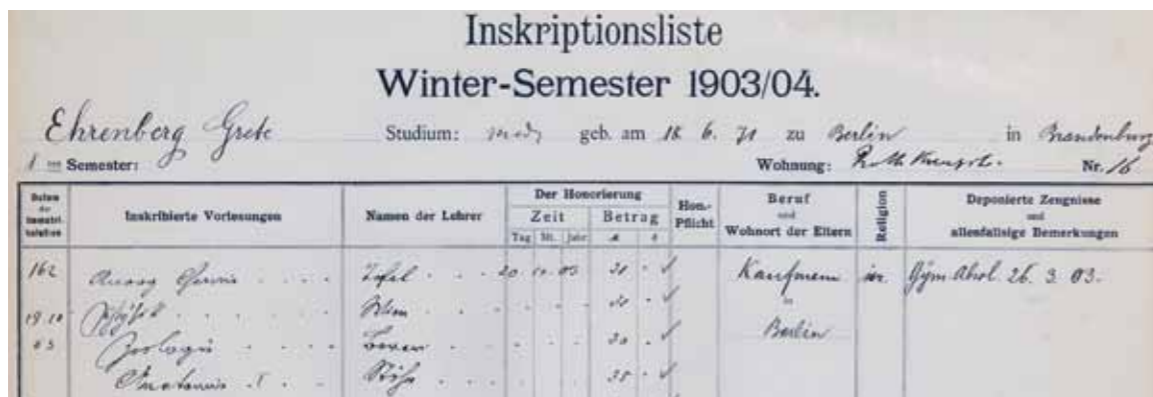 Inskriptionsliste
Winter-Semester 1903/04.
Ehrenberg Grete Studium: med. geb. am 18. 6. zu Berlin in Brandenburg
I Semester: Wohnung: Nr. 16
Datum der Immatrikulation Inskribierte Vorlesungen Namen der Lehrer Der Honorierung Zeit Betrag Tag Mt. Jahr Hon.-Pflicht Beruf und Wohnort der Eltern Religion Deponierte Zeugnisse und allenfallsige Bemerkungen
162 Anorg Chemie Tafel 20 10 03 Kaufmann isr. Gym. Abs. 26. 3. 03.
19.10 Physik Wien in
03 Zoologie Boveri Berlin
Anatomie I Stöhr